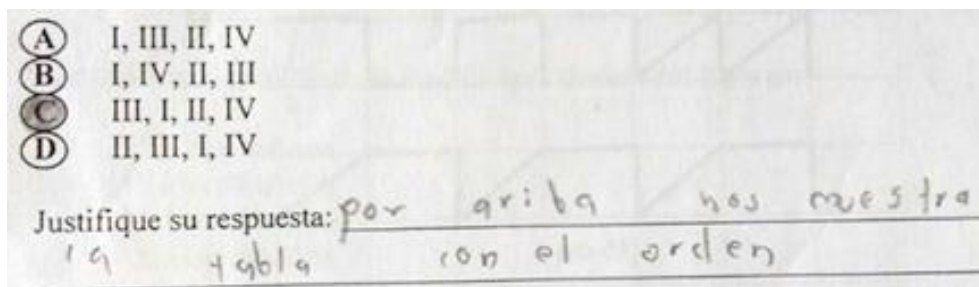 A I, III, II, IV
B I, IV, II, III
C III, I, II, IV
D II, III, I, IV
Justifique su respuesta: por ariba nos muestra
la tabla con el orden